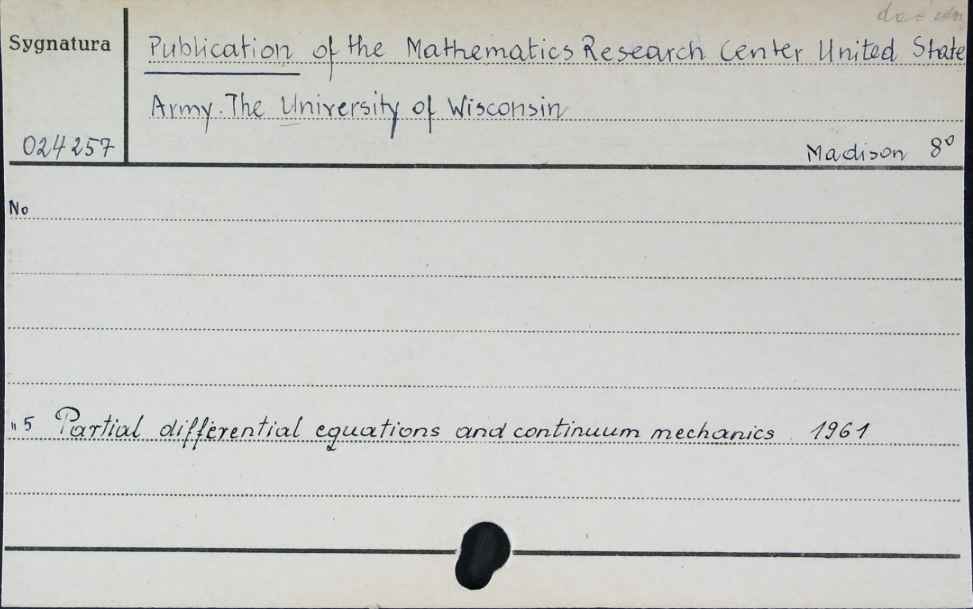 Sygnatura
Publication of the Mathematics Research Center United State
Army. The University of Wisconsin
024257
Madison 8⁰
No
"5 Partial differential equations and continuum mechanics. 1961